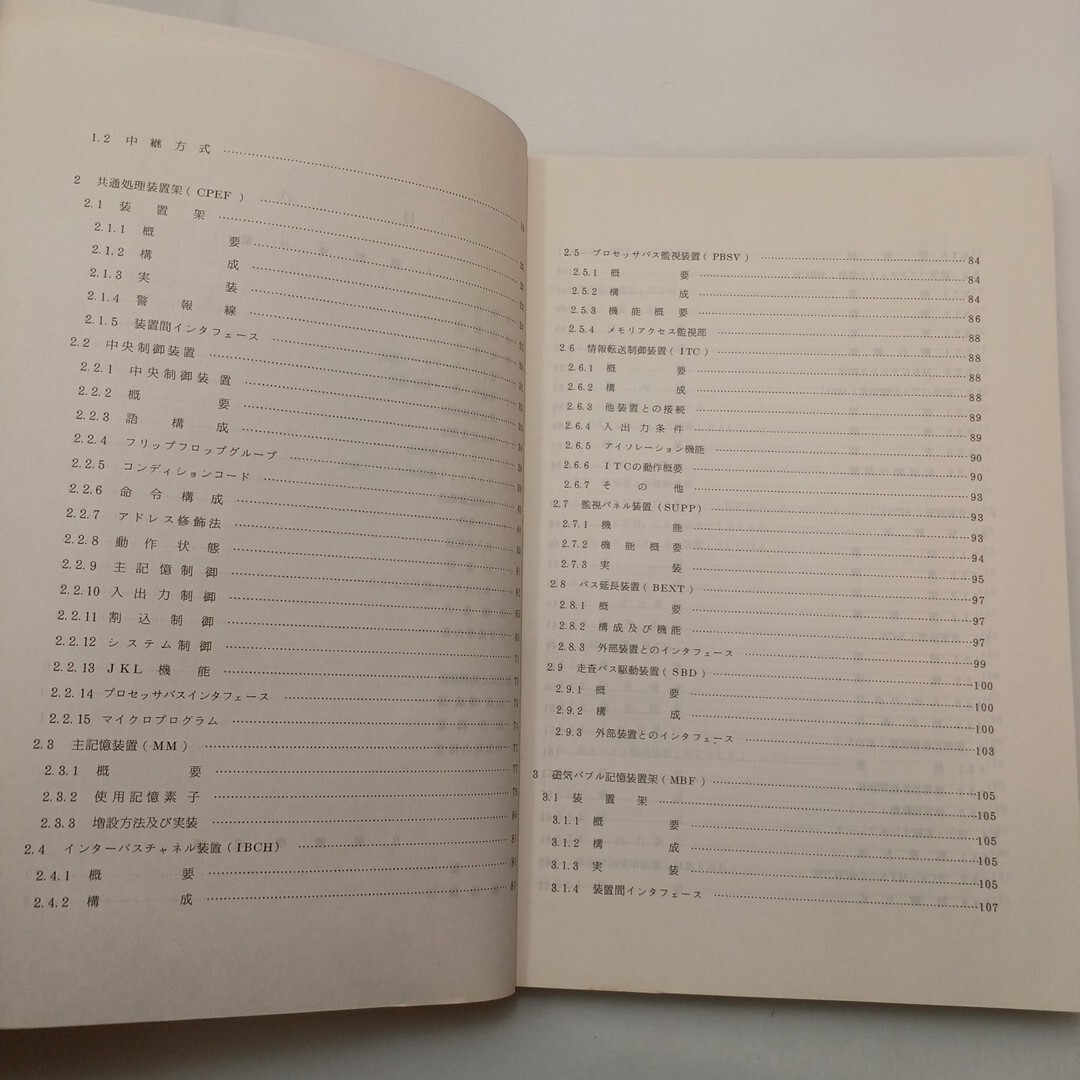 1.2 中継方式
2 共通処理装置架(CPEF)
2.1 装置架
2.1.1 概要
2.1.2 構成
2.1.3 実装
2.1.4 警報線
2.1.5 装置間インタフェース
2.2 中央制御装置
2.2.1 中央制御装置
2.2.2 概要
2.2.3 語構成
2.2.4 フリップフロップグループ
2.2.5 コンディションコード
2.2.6 命令構成
2.2.7 アドレス修飾法
2.2.8 動作状態
2.2.9 主記憶制御
2.2.10 入出力制御
2.2.11 割込制御
2.2.12 システム制御
2.2.13 JKL機能
2.2.14 プロセッサバスインタフェース
2.2.15 マイクロプログラム
2.3 主記憶装置(MM)
2.3.1 概要
2.3.2 使用記憶素子
2.3.3 増設方法及び実装
2.4 インターバスチャネル装置(IBCH)
2.4.1 概要
2.4.2 構成
2.5 プロセッサバス監視装置(PBSV) 84
2.5.1 概要 84
2.5.2 構成 84
2.5.3 機能概要 86
2.5.4 メモリアクセス監視部 88
2.6 情報転送制御装置(ITC) 88
2.6.1 概要 88
2.6.2 構成 88
2.6.3 他装置との接続 89
2.6.4 入出力条件 89
2.6.5 アイソレーション機能 90
2.6.6 ITCの動作概要 90
2.6.7 その他 93
2.7 監視パネル装置(SUPP) 93
2.7.1 機能 93
2.7.2 機能概要 94
2.7.3 実装 95
2.8 バス延長装置(BEXT) 97
2.8.1 概要 97
2.8.2 構成及び機能 97
2.8.3 外部装置とのインタフェース 99
2.9 走査バス駆動装置(SBD) 100
2.9.1 概要 100
2.9.2 構成 100
2.9.3 外部装置とのインタフェース 103
3 磁気バブル記憶装置架(MBF) 105
3.1 装置架 105
3.1.1 概要 105
3.1.2 構成 105
3.1.3 実装 105
3.1.4 装置間インタフェース 107